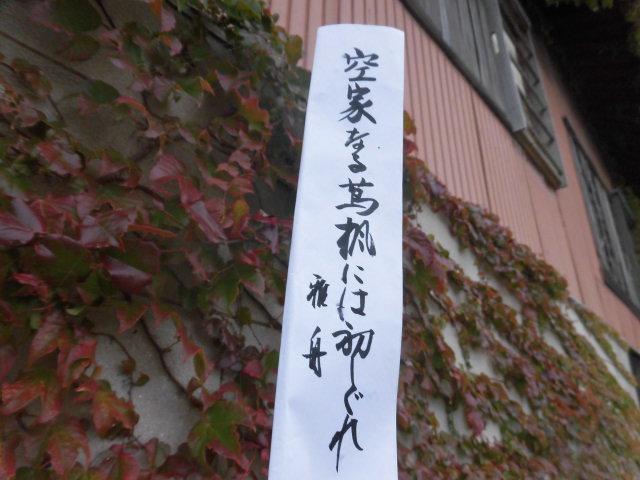 空家なる蔦楓には初しぐれ
雅舟